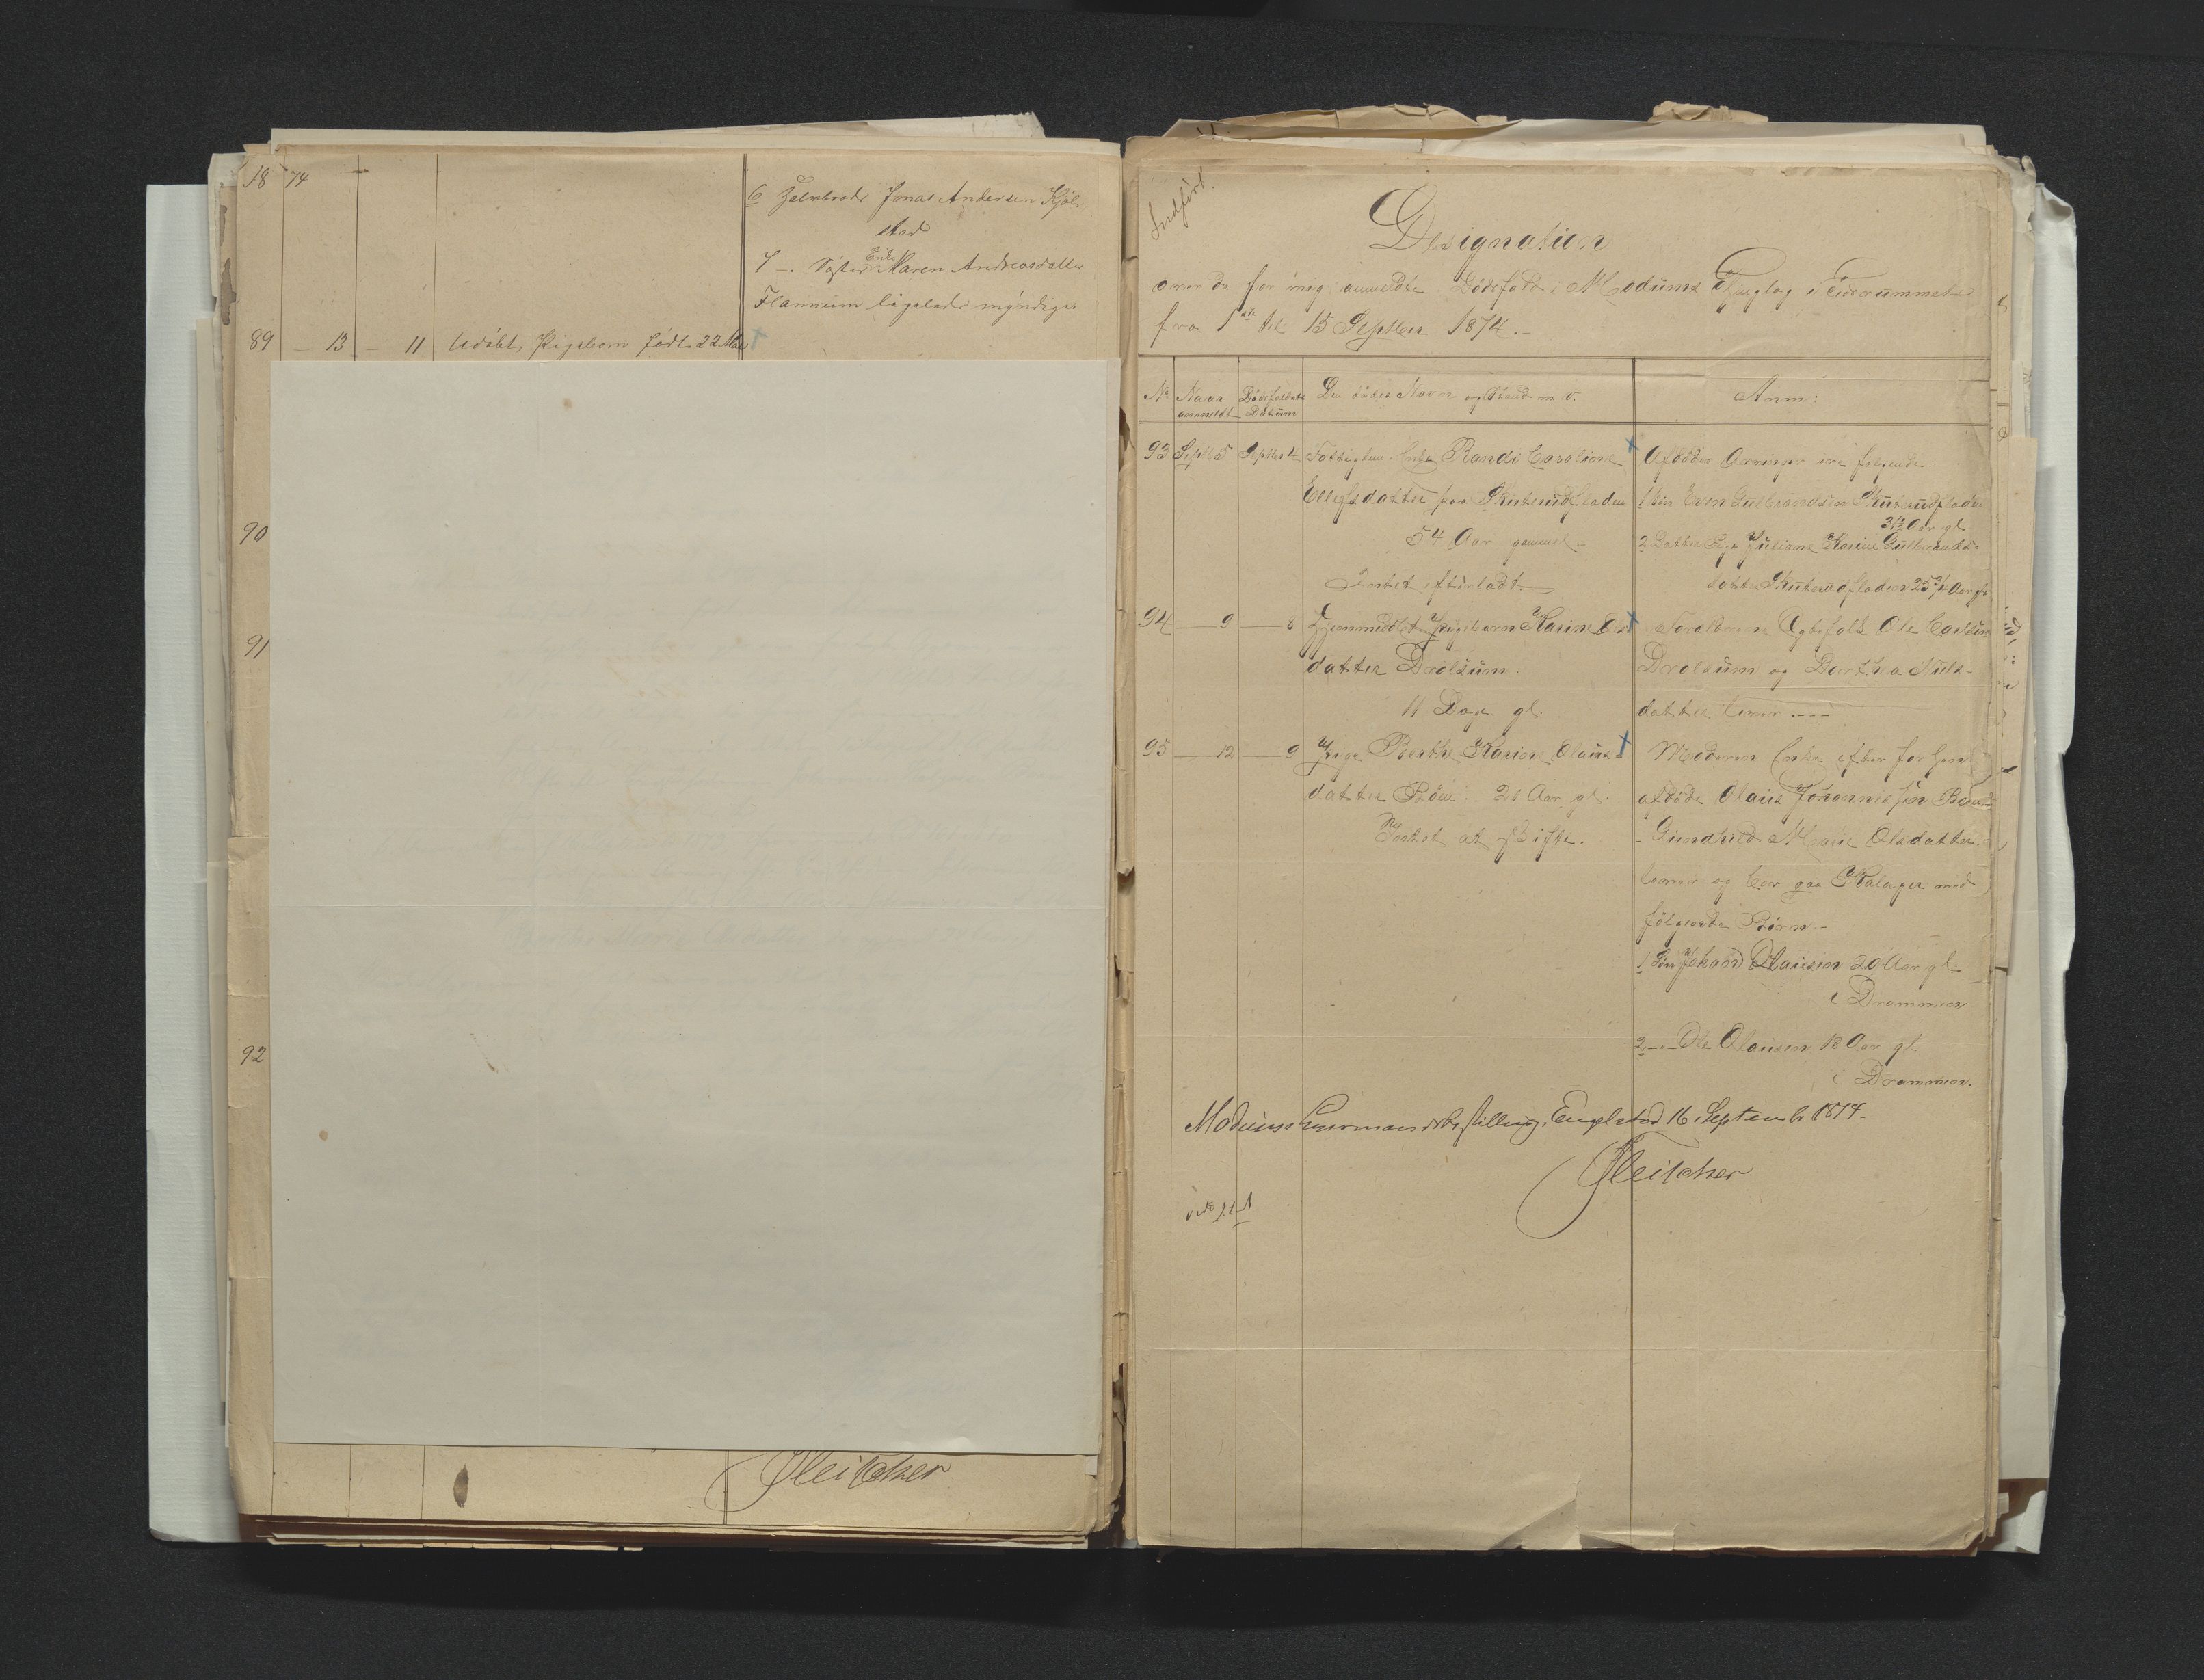 18 74
6 Halvbroder Jonas Andersen Kjøl-
stad
7 –. Søster Enke Maren Andreasdatter
Flannum ligeledes myndige.
89 – 13 – 11 Udøbt Pigebarn født 22 Mai
90
91
92
Fleischer
Indført.
Designation
over de for mig anmeldte Dødsfald i Modums Thinglag i Tidsrummet
fra 1ste til 15 Septber 1874.–
No Naar anmeldt Dødsfaldets Datum Den dødes Navn og Stand m. v. Anm:
93 Septb 5 Septber 1 Fattiglem Enke Randi Caroline
Ellefsdatter paa Skuterudfladen
54 Aar gammel.
Intet efterladt.
Afdødes Arvinger ere følgende:
1 Søn Even Gulbrandsen Skuterudfladen
31½ Aar gl
2 Datter Pige Juliane Karine Gulbrands-
datter Skuterudfladen 25½ Aar gl.
94 – 9 – 8 Hjemmedøbt Pigebarn Karine Ols-
datter Drolsum.
11 Dage gl.
Forældrene Ægtefolk Ole Carlsen
Drolsum og Dorthea Niels-
datter lever.–
95 – 12 – 9 Pige Berthe Karine Olaus-
datter Böen. 21 Aar gl.
Intet at skifte.
Moderen Enke efter for længe
afdøde Olaus Johannessen Böen
– Gunhild Marie Olsdatter
lever og bor paa Kalager med
følgende Børn.–
1 Søn Johan Olausen 20 Aar gl.–
i Drammen
2 –.– Ole Olausen 18 Aar gl
i Drammen.
Modums Lensmandsbestilling, Engelstad 16 Septemb 1874.
Fleischer